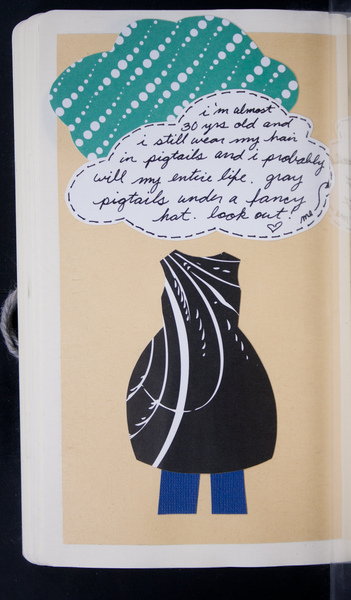 i'm almost
30 yrs old and
i still wear my hair
in pigtails and i probably
will my entire life. gray
pigtails under a fancy
hat. look out!
♡ me